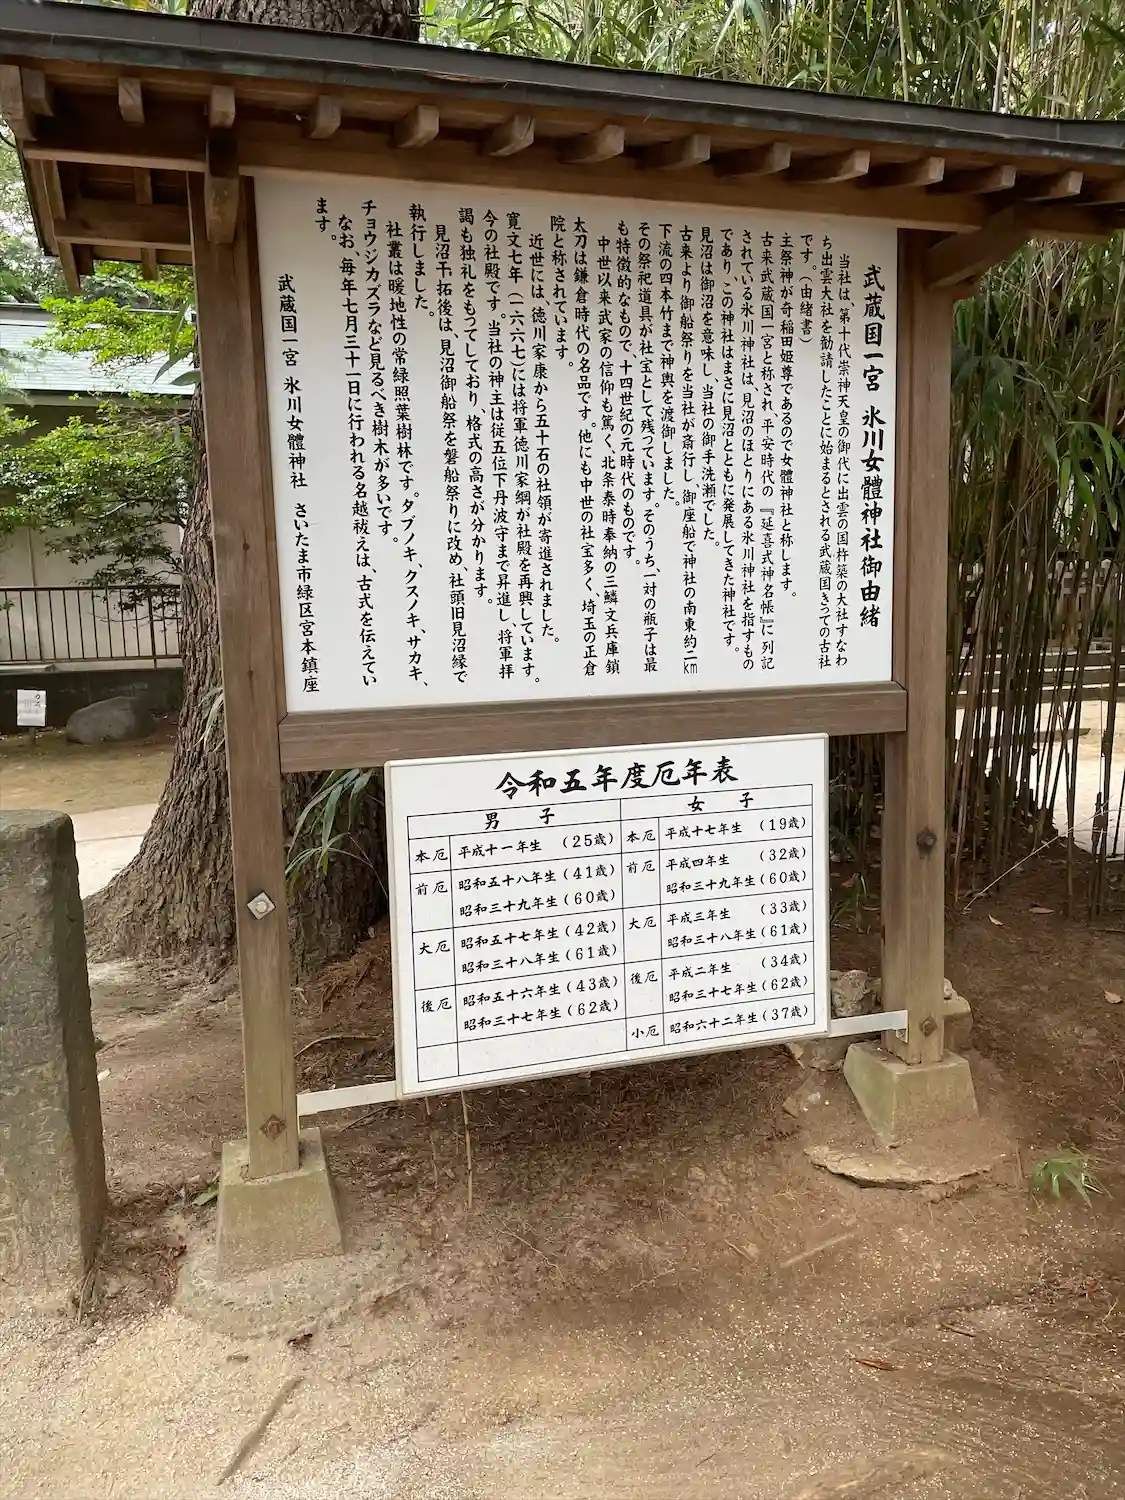 武蔵国一宮 氷川女體神社御由緒
当社は、第十代崇神天皇の御代に出雲の国杵築の大社すなわ
ち出雲大社を勧請したことに始まるとされる武蔵国きっての古社
です。（由緒書）
主祭神が奇稲田姫尊であるので女體神社と称します。
古来武蔵国一宮と称され、平安時代の『延喜式神名帳』に列記
されている氷川神社は、見沼のほとりにある氷川神社を指すもの
であり、この神社はまさに見沼とともに発展してきた神社です。
見沼は御沼を意味し、当社の御手洗瀬でした。
古来より御船祭りを当社が斎行し、御座船で神社の南東約二㎞
下流の四本竹まで神輿を渡御しました。
その祭祀道具が社宝として残っています。そのうち、一対の瓶子は最
も特徴的なもので、十四世紀の元時代のものです。
中世以来武家の信仰も篤く、北条泰時奉納の三鱗文兵庫鎖
太刀は鎌倉時代の名品です。他にも中世の社宝多く、埼玉の正倉
院と称されています。
近世には、徳川家康から五十石の社領が寄進されました。
寛文七年（一六六七）には将軍徳川家綱が社殿を再興しています。
今の社殿です。当社の神主は従五位下丹波守まで昇進し、将軍拝
謁も独礼をもってしており、格式の高さが分かります。
見沼干拓後は、見沼御船祭を磐船祭りに改め、社頭旧見沼縁で
執行しました。
社叢は暖地性の常緑照葉樹林です。タブノキ、クスノキ、サカキ、
チョウジカズラなど見るべき樹木が多いです。
なお、毎年七月三十一日に行われる名越祓えは、古式を伝えてい
ます。
武蔵国一宮 氷川女體神社 さいたま市緑区宮本鎮座
令和五年度厄年表
男子 女子
本厄 平成十一年生 (25歳) 本厄 平成十七年生 (19歳)
前厄 昭和五十八年生 (41歳) 前厄 平成四年生 (32歳)
昭和三十九年生 (60歳) 昭和三十九年生 (60歳)
大厄 昭和五十七年生 (42歳) 大厄 平成三年生 (33歳)
昭和三十八年生 (61歳) 昭和三十八年生 (61歳)
後厄 昭和五十六年生 (43歳) 後厄 平成二年生 (34歳)
昭和三十七年生 (62歳) 昭和三十七年生 (62歳)
小厄 昭和六十二年生 (37歳)